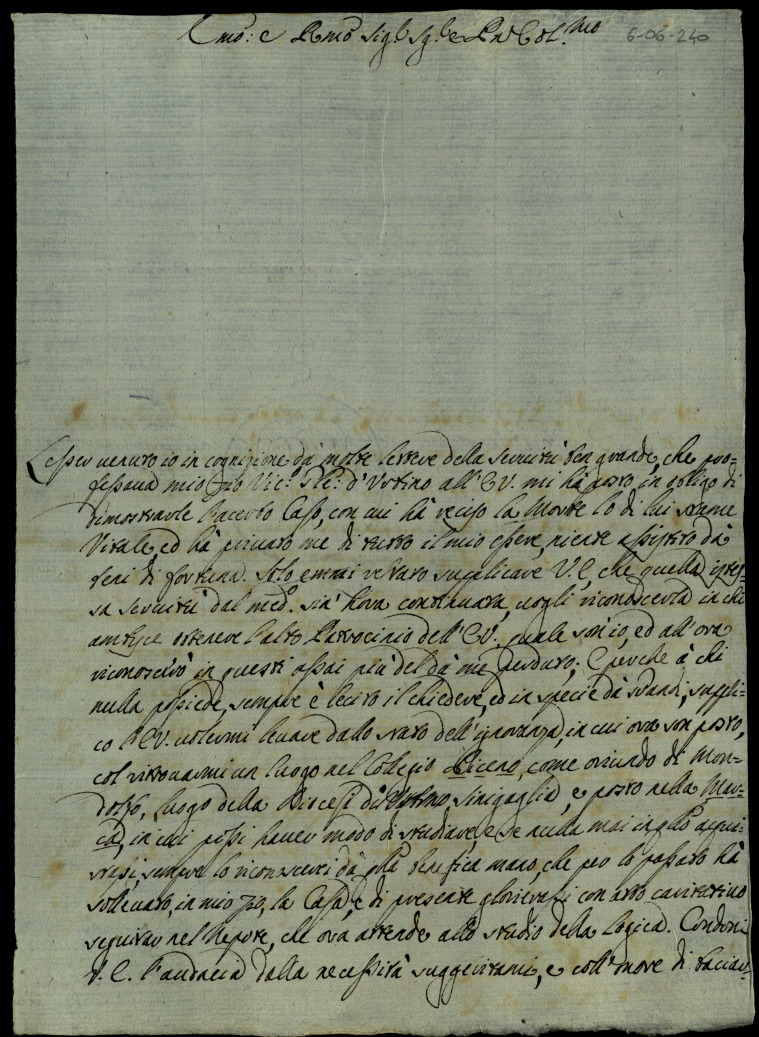 Emo: e Rmo Sig.r Sg.r e Pne Col.mo 6-06-240
L'esser venuto io in cognizione da molte lettere della servitù ben grande, che pro=
fessava mio Zio Vic.o Gle: d'Urbino all'E.V. mi hà posto in obligo di
dimostrarle l'acerbo Caso, con cui hà reciso la Morte lo di lui stame
Vitale, ed hà privato me di tutto il mio essere, niente assistito da
beni di fortuna. Solo entrai vetaro suplicare V.E. che quella istes=
sa servitù dal med.o sin'hora continuata, vogli riconoscerla in chi
ambisce ottenere l'alto Patrocinio dell'E.V., quale son'io, ed all'ora
riconoscerò in questi assai più del da me perduto; E perche à chi
nulla possiede, sempre è lecito il chiedere, ed in specie da Grandi, suppli=
co l'E.V. volermi levare dallo stato dell'ignoranza, in cui ora son posto,
col ritrovarmi un luogo nel Collegio Piceno, come oriundo di Mon=
dolfo, luogo della Diocesi di Sinigaglia, e posto nella Mar=
ca, in cui possi haver modo di studiare, e se nulla mai in gl'o acqui=
stasi, sempre lo riconoscerei da q'lla benefica mano, che per lo passato hà
sollevato, in mio Zio, la Casa, e di presente glorierassi con atto caritativo
seguirar nel Nepote, che ora attende allo studio della Logica. Condoni
V.E. l'audacia dalla necessità suggeritami, e coll'onore di baciar=